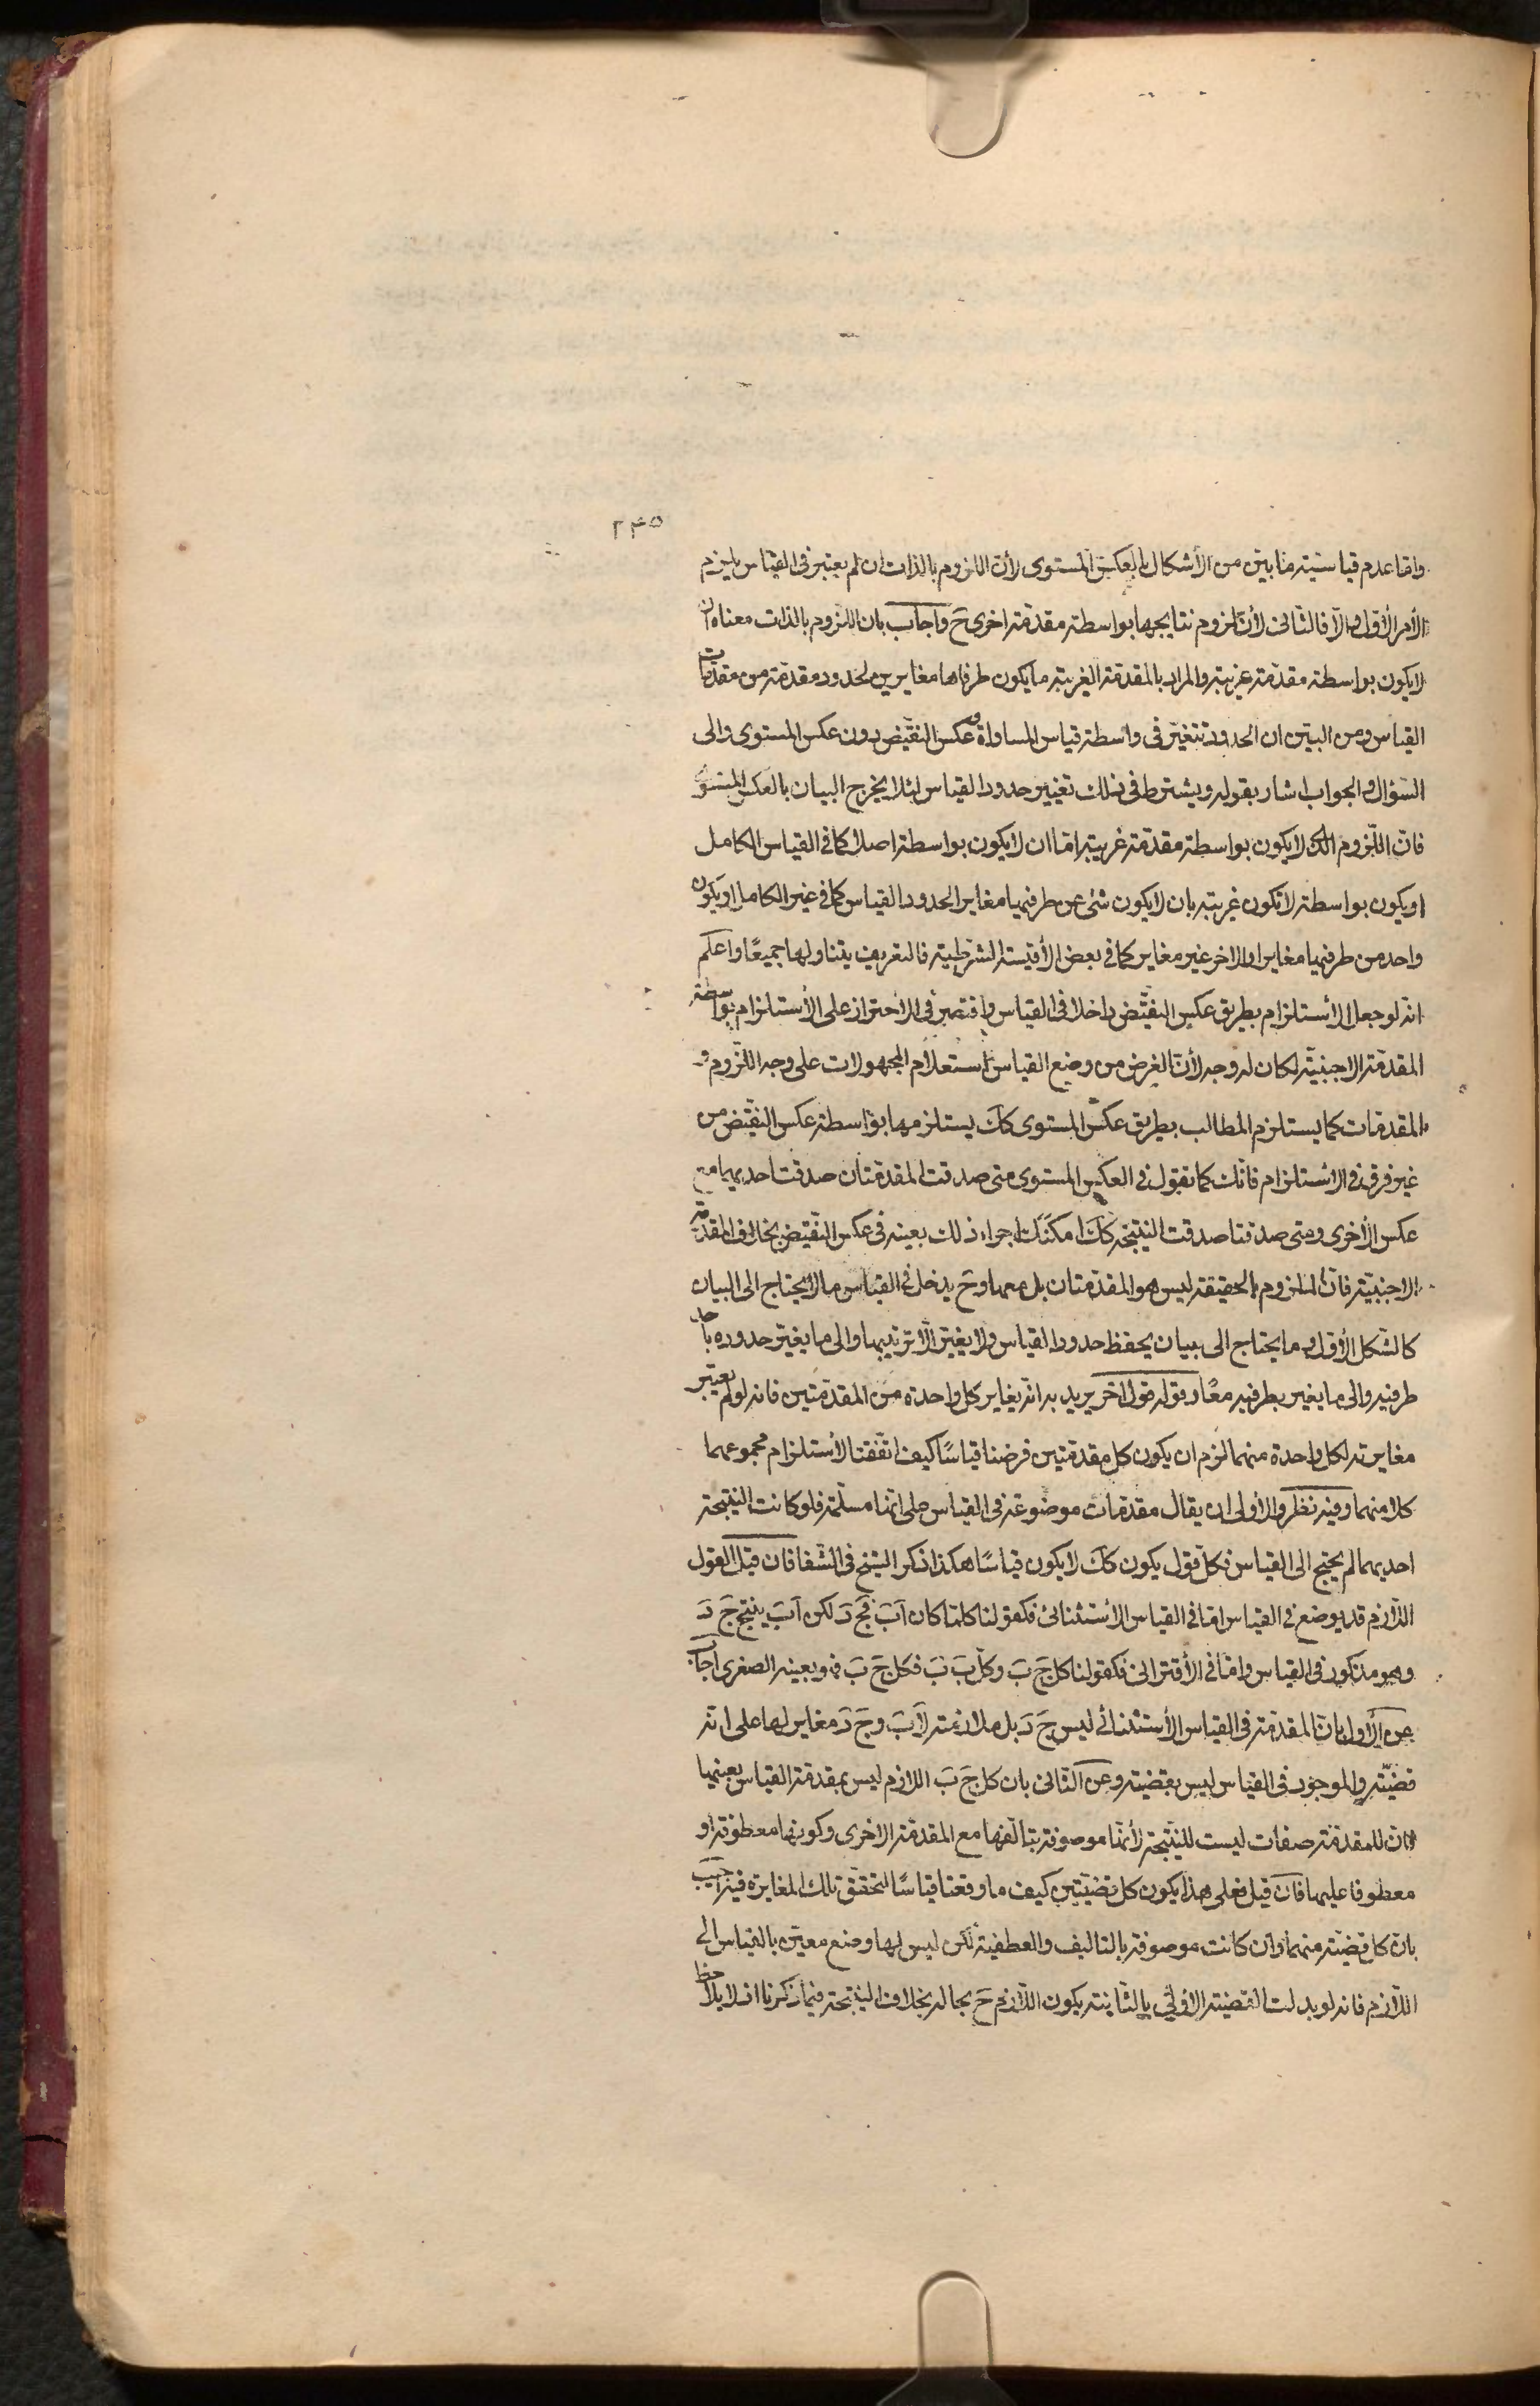 ٢٣٥
واما عدم قياسية ما بين من الأشكال بالعكس المستوى لأن اللزوم بالذات ان لم يعتبر في القياس يلزم
الأمر الأول والا فالثاني لأن لزوم نتايجها بواسطة مقدمة اخرى ح واجاب بان اللزوم بالذات معناه ان
لا يكون بواسطة مقدمة غريبة والمراد بالمقدمة الغريبة ما يكون طرفاها مغايرين لحدود مقدمة من مقدمات
القياس ومن البين ان الحدود تتغير في واسطة قياس المساواة وعكس النقيض دون عكس المستوى والى
السؤال والجواب اشار بقوله ويشترط في ذلك تغيير حدود القياس لئلا يخرج البيان بالعكس المستوى
فان اللزوم الذى لا يكون بواسطة مقدمة غريبة اما ان لا يكون بواسطة اصلا كما في القياس الكامل
او يكون بواسطة لا تكون غريبة بان لا يكون شئ من طرفيها مغاير الحدود القياس كما في غير الكامل او يكون
واحد من طرفيها مغايرا والاخر غير مغاير كما في بعض الأقيسة الشرطية فالتعريف يتناولها جميعًا واعلم
انه لو جعل الأستلزام بطريق عكس النقيض داخلا في القياس واقتصر في الاحتراز على الأستلزام بواسطة
المقدمة الاجنبية لكان له وجه لأن الغرض من وضع القياس استعلام المجهولات على وجه اللزوم و
المقدمات كما يستلزم المطالب بطريق عكس المستوى كك يستلزمها بواسطة عكس النقيض من
غير فرق في الاستلزام فانك كما تقول في العكس المستوى متى صدقت المقدمتان صدقت احديهما مع
عكس الأخرى ومتى صدقتا صدقت النتيجة كك امكنك اجراء ذلك بعينه في عكس النقيض بخلاف المقدمة
الاجنبية فان الملزوم بالحقيقة ليس هو المقدمتان بل معها وح يدخل في القياس ما لا يحتاج الى البيان
كالشكل الأول وما يحتاج الى بيان يحفظ حدود القياس ولا يغير الا ترتيبها والى ما يغير حدوده باحد
طرفيه والى ما يغير بطرفيه معًا وقوله قول اخر يريد به انه يغاير كل واحدة من المقدمتين فانه لو لم يعتبر
مغايرته لكل واحدة منهما لزم ان يكون كل مقدمتين فرضنا قياسًا كيف اتفقتا لأستلزام مجموعهما
كلا منهما وفيه نظر والأولى ان يقال مقدمات موضوعة في القياس على انها مسلمة فلو كانت النتيجة
احديهما لم يحتج الى القياس فكل قول يكون كك لا يكون قياسًا هكذا ذكر الشيخ في الشفا فان قيل القول
اللازم قد يوضع في القياس اما في القياس الأستثنائى فكقولنا كلما كان اَبَ فجَ دَ لكن اَبَ ينتج جَ دَ
وهو مذكور في القياس واما في الأقترانى فكقولنا كل جَ بَ وكل بَ بَ فكل جَ بَ فهو بعينه الصغرى اجاب
عن الأول بان المقدمة في القياس الأستثنائى ليس جَ دَ بل ملازمته لاَبَ وجَ دَ مغاير لها على انه
قضية والموجود في القياس ليس بقضية وعن الثانى بان كل جَ بَ اللازم ليس بمقدمة القياس بعينها
لان للمقدمة صفات ليست للنتيجة لأنها موصوفة بتالفها مع المقدمة الاخرى وكونها معطوفة او
معطوفا عليها فان قيل فعلى هذا يكون كل قضيتين كيف ما وقعتا قياسًا لتحقق تلك المغايرة فيه اجيب
بان كل قضية منهما وان كانت موصوفة بالتاليف والعطفية لكن ليس لها وضع معين بالقياس الى
اللازم فانه لو بدلت القضية الأولى بالثانية يكون اللازم ح بحاله بخلاف النتيجة فيما ذكرنا اذ لا يلاحظ